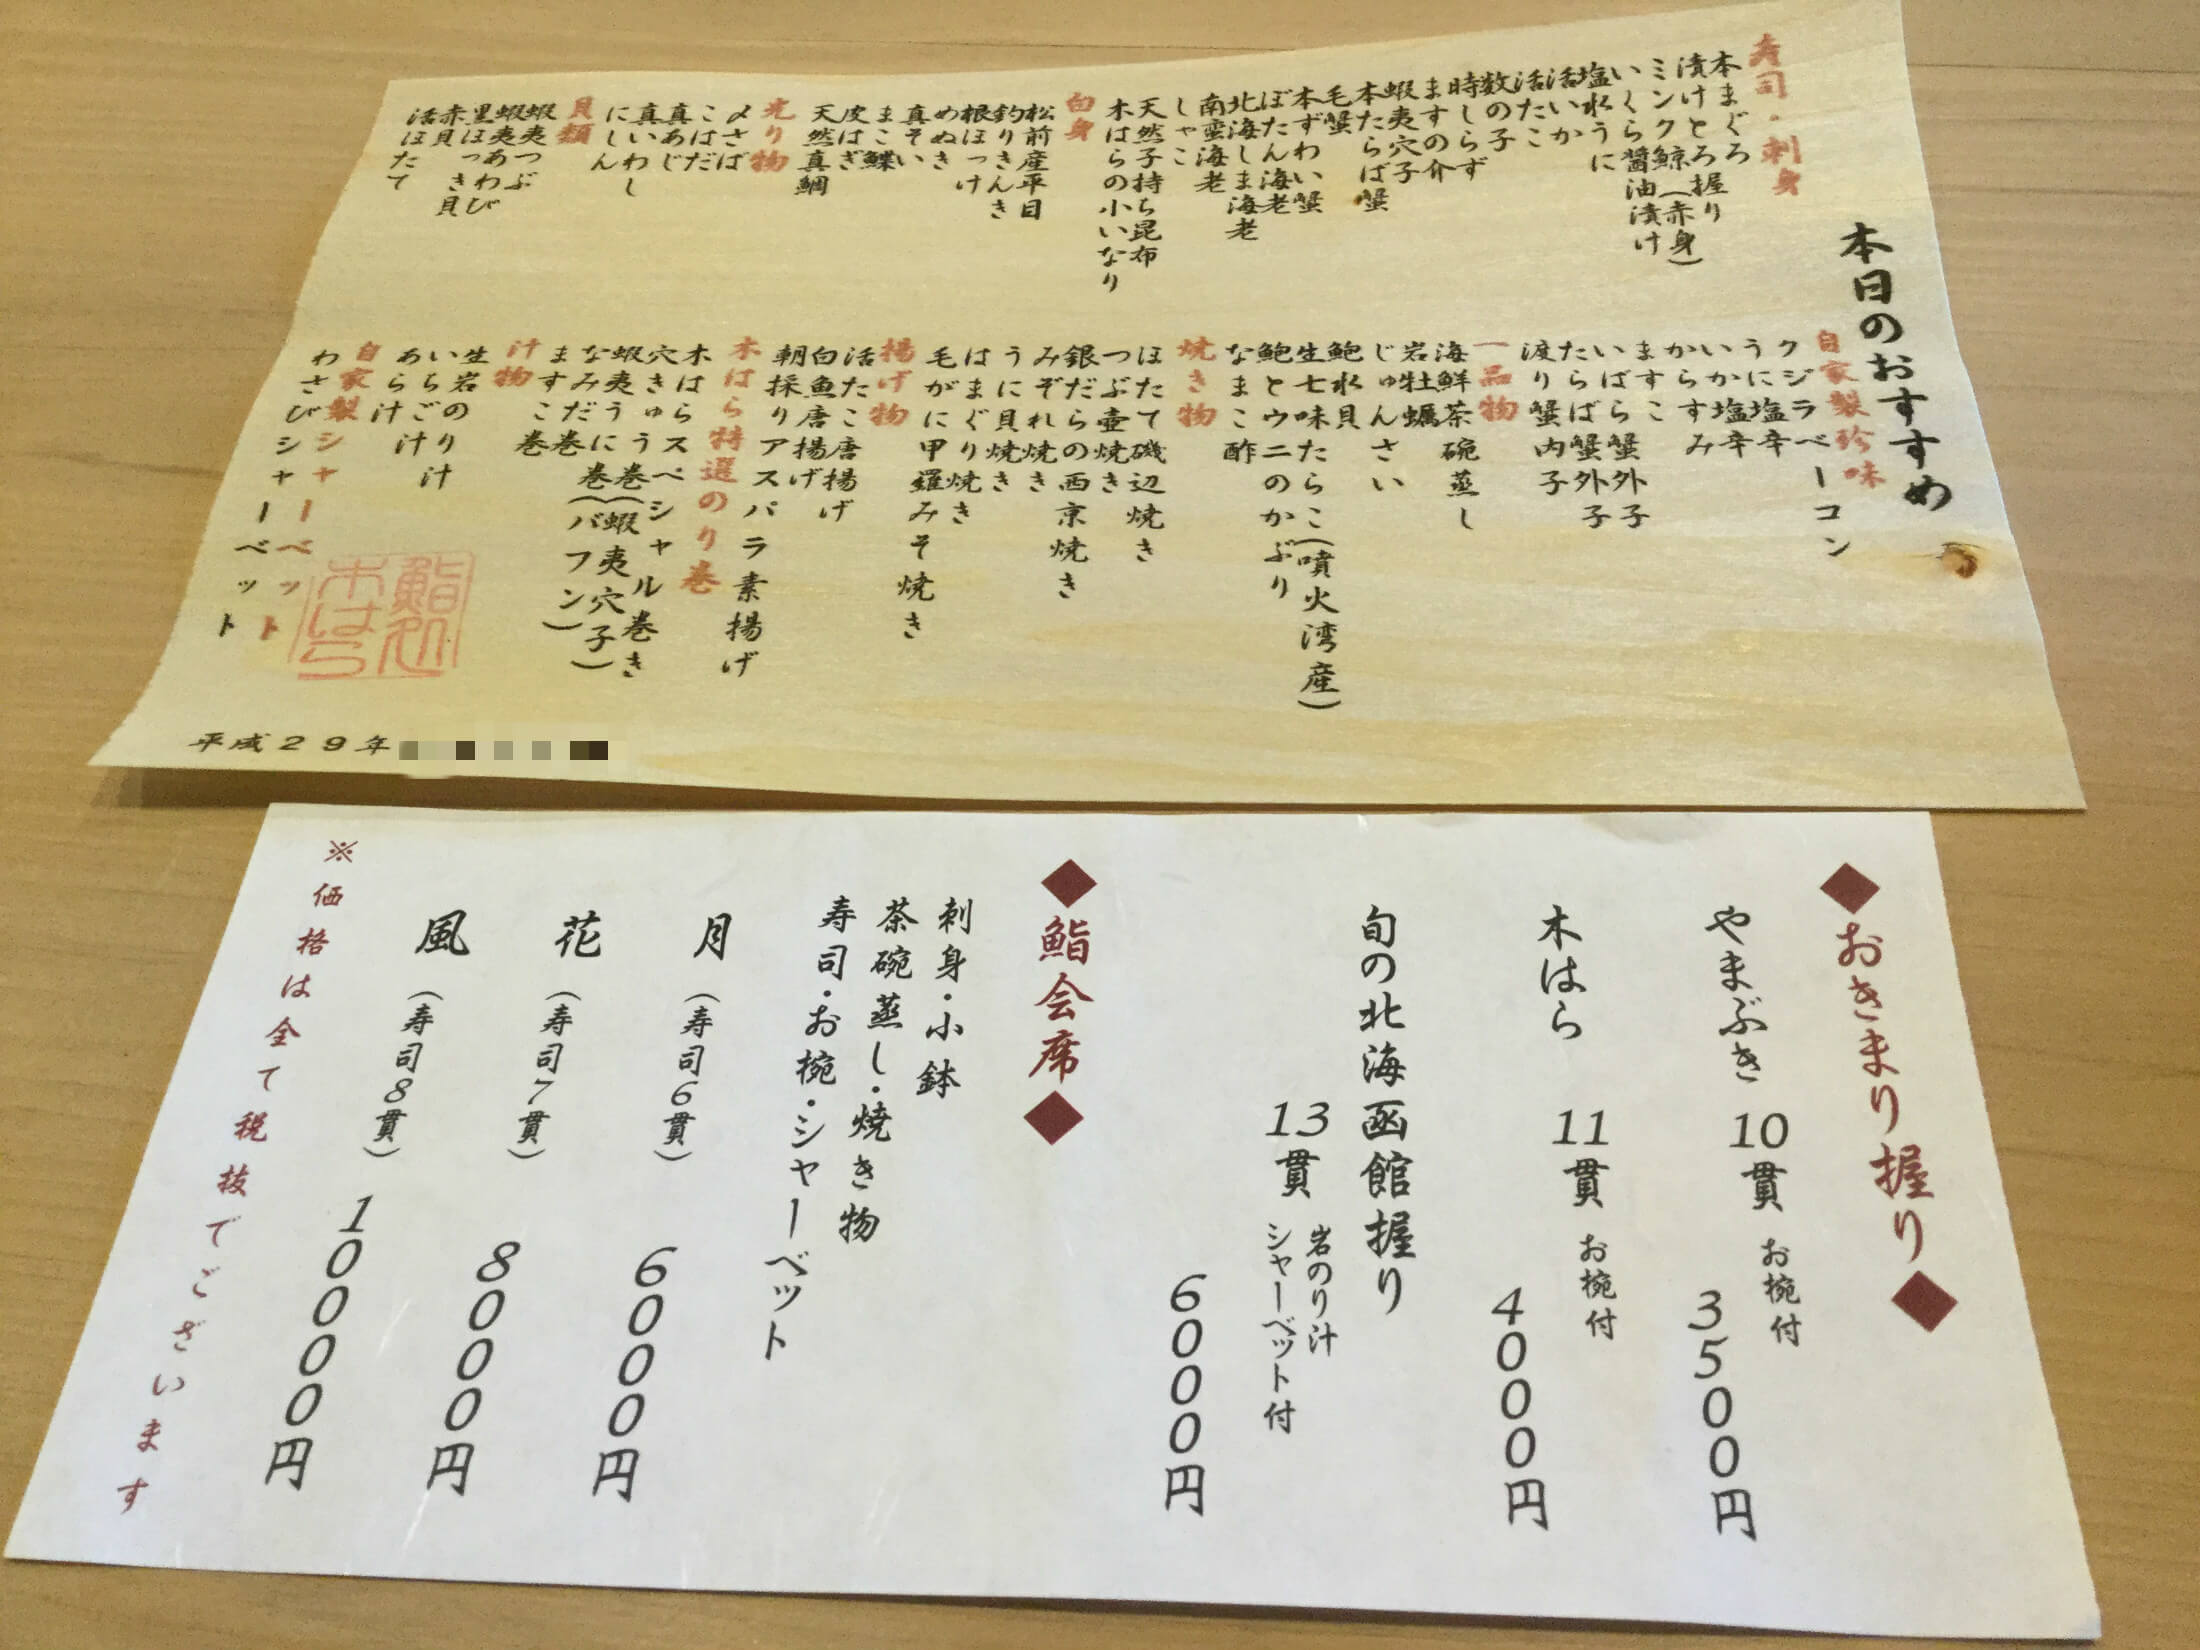 本日のおすすめ
寿司・刺身
本まぐろ
漬けとろ握り
ミンク鯨(赤身)
いくら醤油漬け
塩水うに
活いか
活たこ
数の子
時しらず
ますの介
蝦夷穴子
本たらば蟹
毛蟹
本ずわい蟹
ぼたん海老
北海しま海老
南蛮海老
しゃこ
天然子持ち昆布
木はらの小いなり
白身
松前産平目
釣りきんき
根ほっけ
めぬき
真そい
まこ鰈
皮はぎ
天然真鯛
光り物
〆さば
こはだ
真あじ
真いわし
にしん
貝類
蝦夷つぶ
蝦夷あわび
黒ほっき貝
赤貝
活ほたて
自家製珍味
クジラベーコン
うに塩辛
いか塩辛
からすみ
ますこ
いばら蟹外子
たらば蟹外子
渡り蟹内子
一品物
海鮮茶碗蒸し
岩牡蠣
じゅんさい
鮑水貝
生七味たらこ(噴火湾産)
鮑とウニのかぶり
なまこ酢
焼き物
ほたて磯辺焼き
つぶ壷焼き
銀だらの西京焼き
みぞれ焼き
うに貝焼き
はまぐり焼き
毛がに甲羅みそ焼き
揚げ物
活たこ唐揚げ
白魚唐揚げ
朝採りアスパラ素揚げ
木はら特選のり巻
木はらスペシャル巻き
穴きゅう巻(蝦夷穴子)
蝦夷うに巻(バフン)
なみだ巻
ますこ巻
汁物
生岩のり汁
いちご汁
あら汁
自家製シャーベット
わさびシャーベット
鮨処木はら
平成29年
◆おきまり握り◆
やまぶき 10貫 お椀付 3500円
木はら 11貫 お椀付 4000円
旬の北海函館握り
13貫 岩のり汁 シャーベット付 6000円
◆鮨会席◆
刺身・小鉢
茶碗蒸し・焼き物
寿司・お椀・シャーベット
月(寿司6貫) 6000円
花(寿司7貫) 8000円
風(寿司8貫) 10000円
※価格は全て税抜でございます